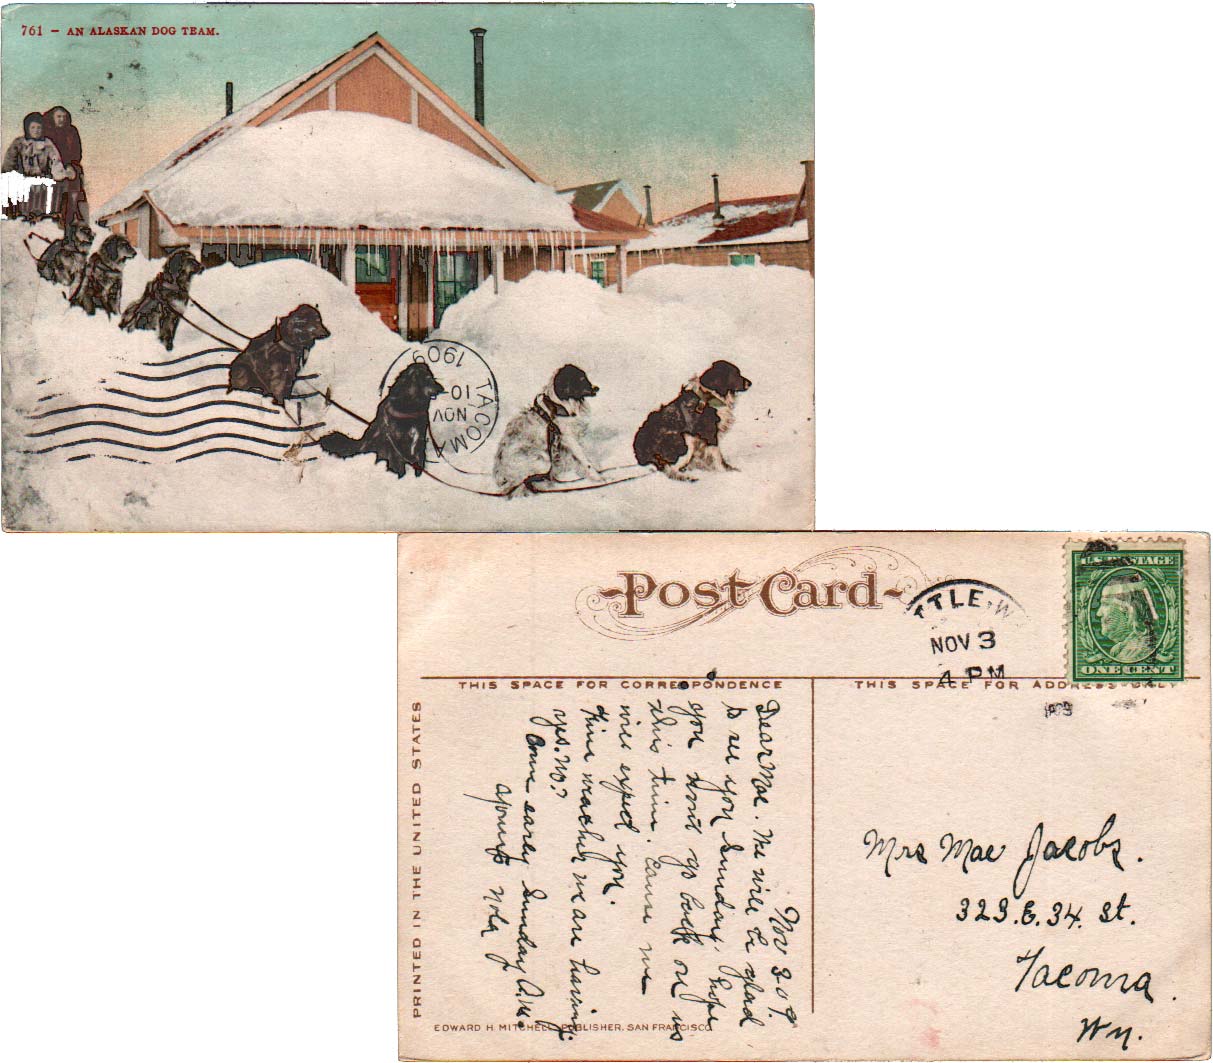 761 – AN ALASKAN DOG TEAM.
TACOMA
NOV
10
1909
Post Card
TTLE, W
NOV 3
4 PM
U.S. POSTAGE
ONE CENT
THIS SPACE FOR CORRESPONDENCE
THIS SPACE FOR ADDRESS ONLY
PRINTED IN THE UNITED STATES
Nov 3-09.
Dear Mae. We will be glad
to see you Sunday, hope
you don't go back on us
this time. Cause we
will expect you.
Fine weather we are having.
yes. No?
Come early Sunday A.M.
Nola J.
Mrs Mae Jacobs.
323. E. 34. St.
Tacoma.
Wn.
EDWARD H. MITCHELL, PUBLISHER, SAN FRANCISCO